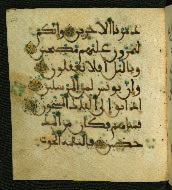 دمرنا الاخرين وانكم
لتمرون عليهم مصبحين
وباليل افلا تعقلون
وان يونس لمن المرسلين
اذ ابق الى الفلك المشحون
فساهم فكان من المد
حضين فالتقمه الحوت